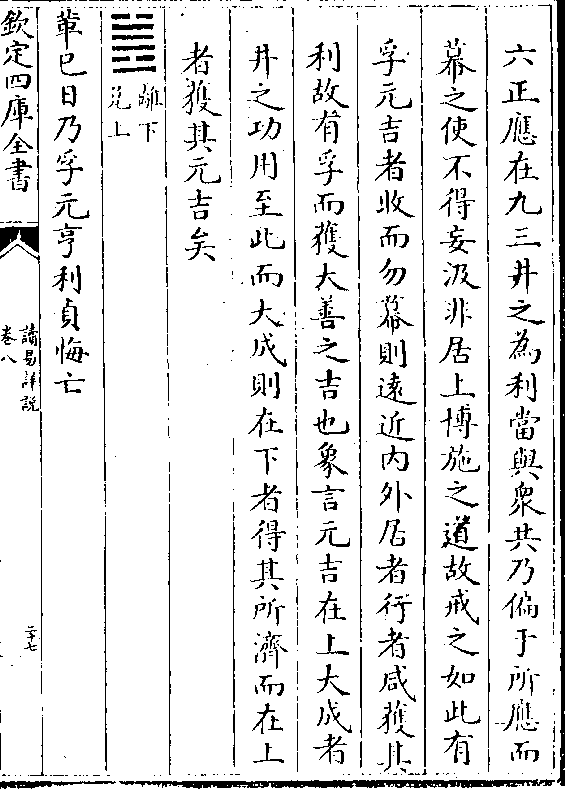 六正應在九三井之為利當與衆共乃偏于所應而
幕之使不得妄汲非居上博施之道故戒之如此有
孚元吉者收而勿幕則遠近内外居者行者咸獲其
利故有孚而獲大善之吉也象言元吉在上大成者
井之功用至此而大成則在下者得其所濟而在上
者獲其元吉矣
離下
兊上
革巳日乃孚元亨利貞悔亡
欽定四庫全書
讀易詳説
卷八
二十七